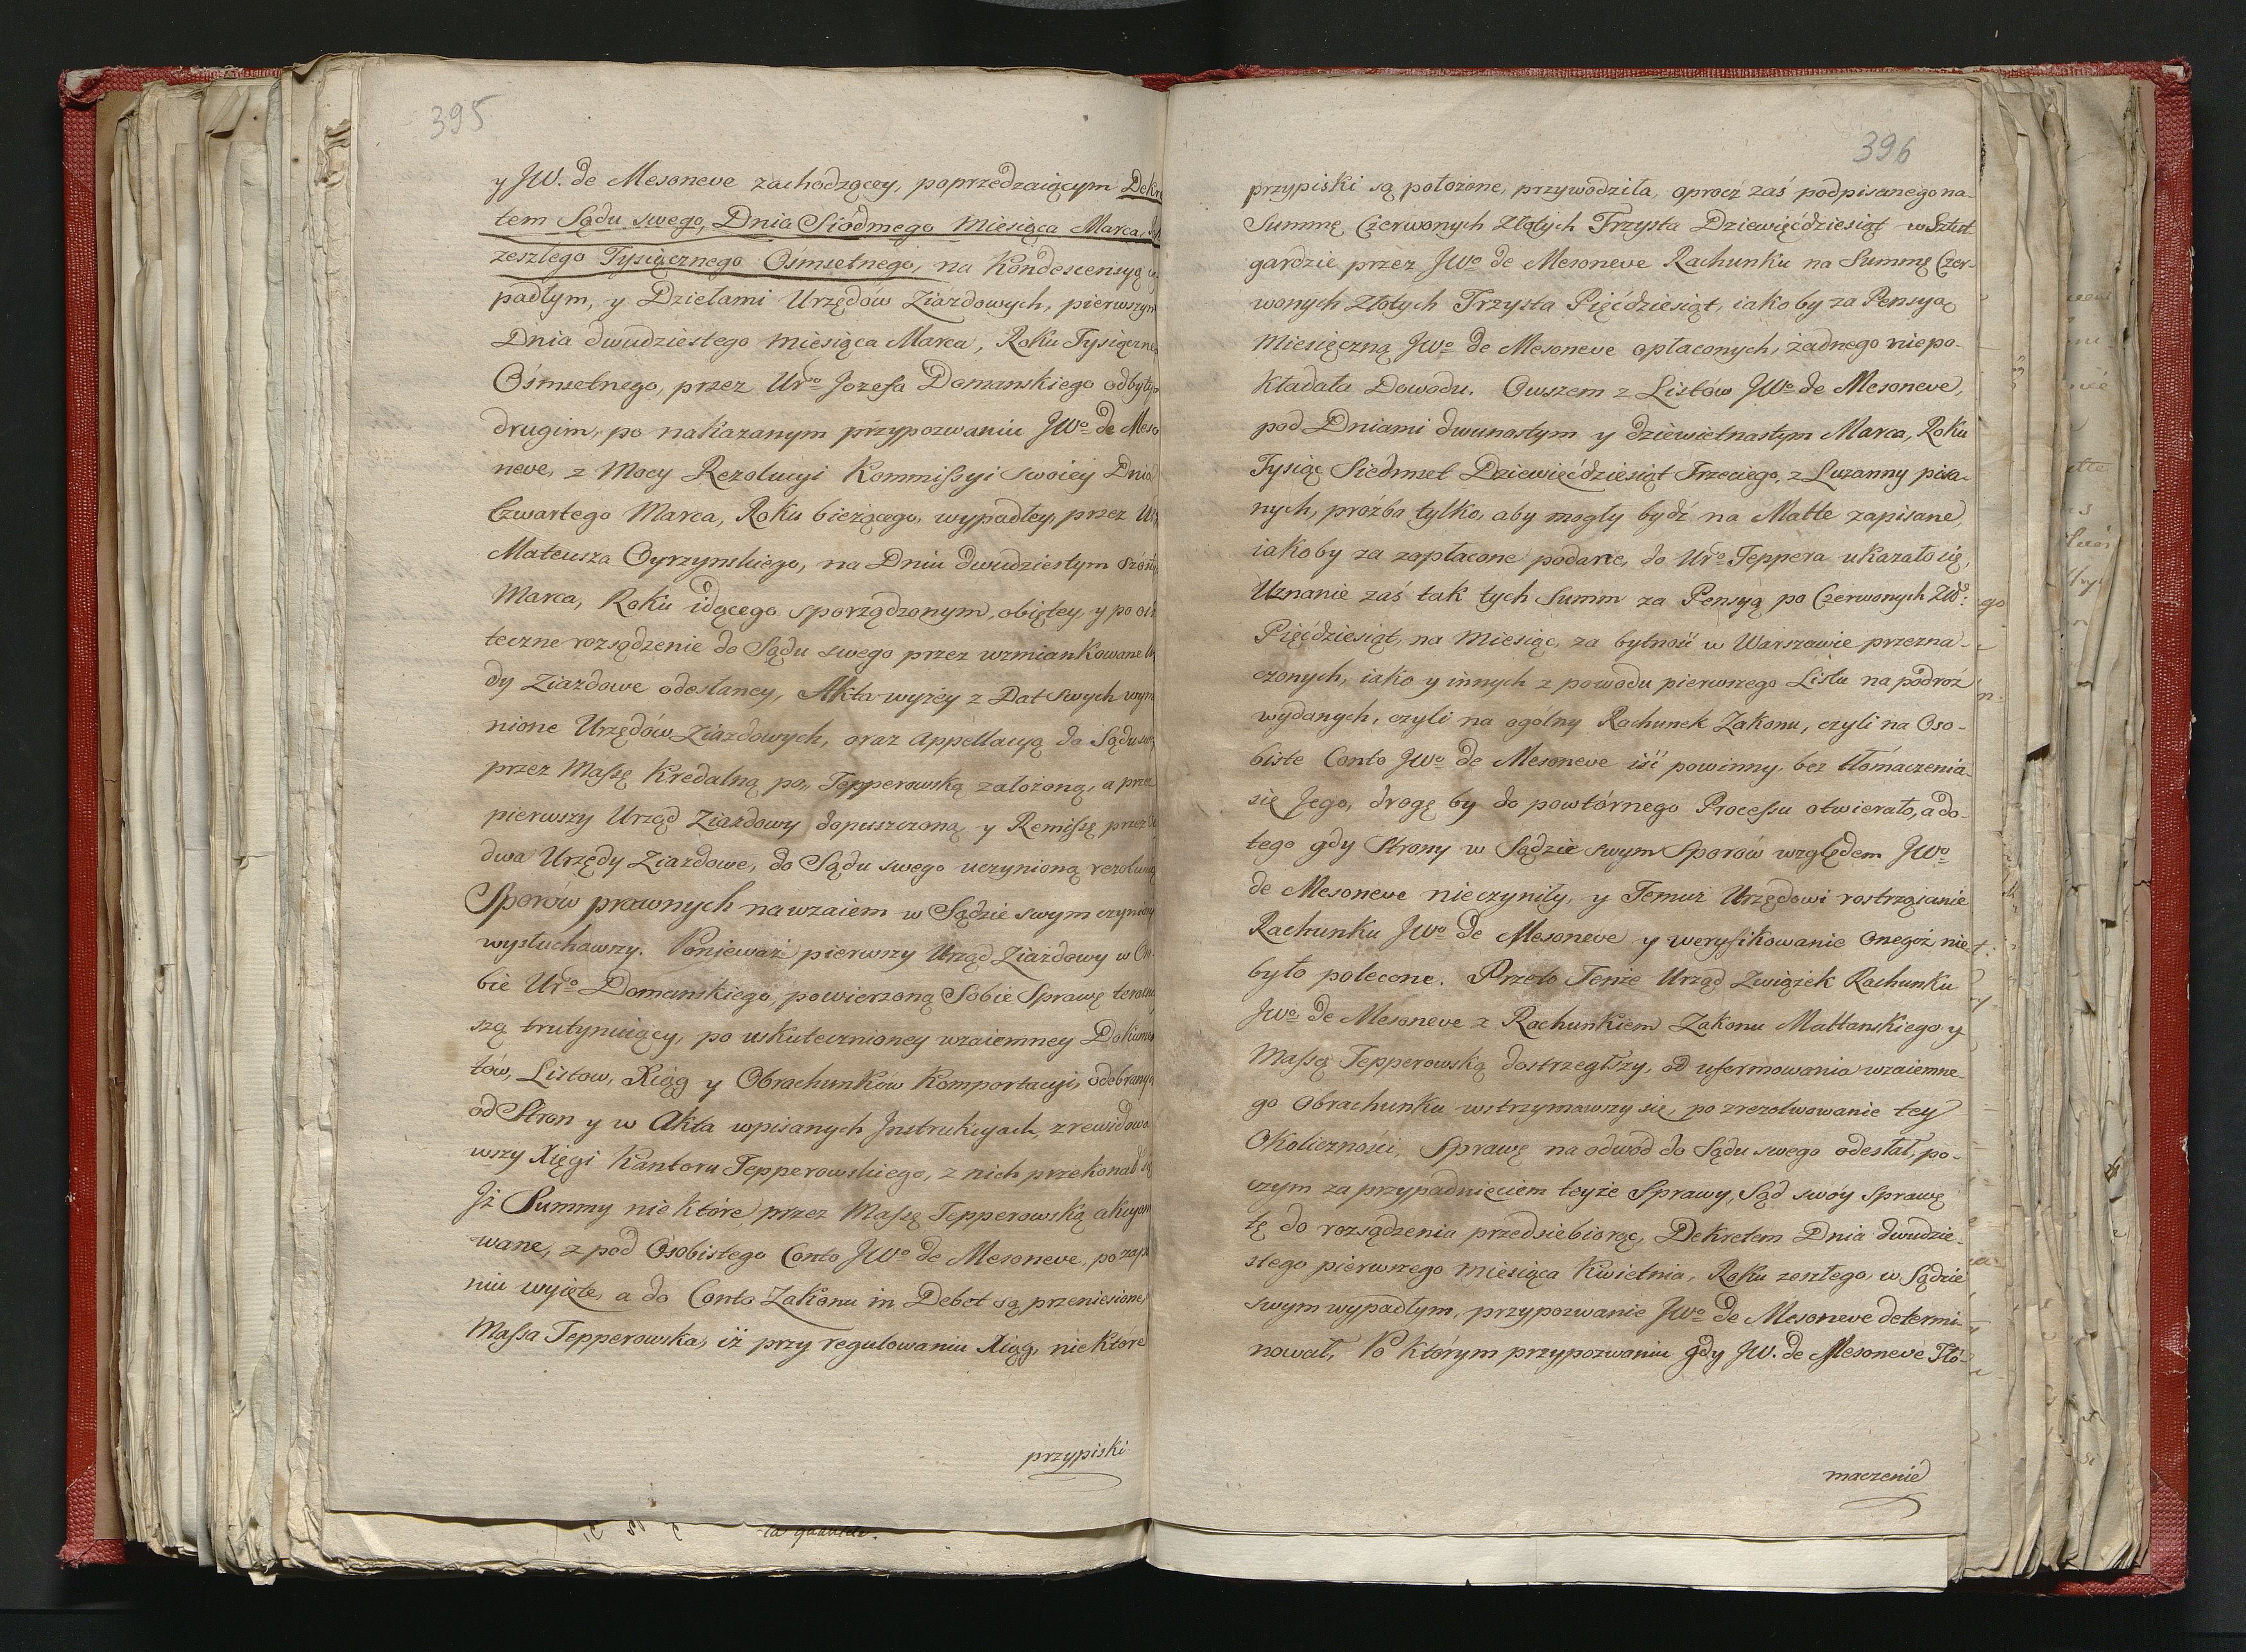 395
y JW. de Mesoneve zachodzącey, poprzedzaiącym Dekre
tem Sądu swego, Dnia Siódmego Miesiąca Marca,
zeszłego Tysiącznego Ośmsetnego, na Kondescensyą
padłym, y Dziełami Urzędów Ziazdowych, pierwszym
Dnia dwudziestego Miesiąca Marca, Roku Tysiączne
Ośmsetnego, przez Uro Jozefa Domanskiego odbyty
drugim, po nakazanym przypozwaniu JWo de Meso
neve, z Mocy Rezolucyi Kommissyi swoiey Dnia
Czwartego Marca, Roku bieżącego, wypadłey, przez Ur
Mateusza Oyrzynskiego, na Dniu dwudziestym szóst
Marca, Roku idącego sporządzonym, obiętey, y po os
teczne rozsądzenie do Sądu swego przez wzmiankowane
dy Ziazdowe odesłaney, Akta wyżey z Dat swych wym
nione Urzędów Ziazdowych, oraz Appellacyą do Sądu
przez Massę Kredalną po„ Tepperowską założoną, a prze
pierwszy Urząd Ziazdowy dopuszczoną y Remissę przez
dwa Urzędy Ziazdowe, do Sądu swego uczynioną rezolwuiąc
Sporów prawnych nawzaiem w Sądzie swym czyniony
wysłuchawszy. Ponieważ pierwszy Urząd Ziazdowy w Oso
bie Uro Domanskiego, powierzoną Sobie Sprawę teraźniey
szą trutynuiący, po uskutecznioney wzaiemney Dokumen
tów, Listow, Xiąg y Obrachunków Komportacyi, odebranych
od Stron y w Akta wpisanych Jnstrukcyach, zrewidowa
wszy Xięgi Kantoru Tepperowskiego, z nich przekonał się
Jż Summy niektóre przez Massę Tepperowską akcyon
wane, z pod Osobistego Conto JWo de Mesoneve, po zapi
niu wyięte, a do Conto Zakonu in Debet są przeniesione,
Massa Tepperowska, iż przy regulowaniu Xiąg, niektóre
przypiski
396
przypiski są położone, przywodziła, oprocz zaś podpisanego na
Summę Czerwonych Złotych Trzysta Dziewięćdziesiąt w Sztut-
gardzie przez JWo de Mesoneve Rachunku na Summę Czer-
wonych Złotych Trzysta Pięćdziesiąt, iakoby za Pensyą
Miesięczną JWo de Mesoneve opłaconych, żadnego niepo-
kładała Dowodu. Owszem z Listów JWo de Mesoneve,
pod Dniami dwunastym y dziewietnastym Marca, Roku
Tysiąc Siedmset Dziewięćdziesiąt Trzeciego, z Luzanny pisa-
nych, prózba tylko, aby mogły bydź na Malte zapisane,
iakoby za zapłacone podane, do Uro Teppera ukazało się,
Uznanie zaś tak tych Summ za Pensyą po Czerwonych Złł:
Pięćdziesiąt, na Miesiąc, za bytność w Warszawie przezna-
czonych, iako y innych z powodu pierwszego Listu na podróż
wydanych, czyli na ogólny Rachunek Zakonu, czyli na Oso-
biste Conto JWo de Mesoneve iść powinny, bez tłómaczenia
się Jego, drogę by do powtórnego Processu otwierało, a do-
tego gdy Strony w Sądzie swym Sporów względem JWo
de Mesoneve nieczyniły, y Temuż Urzędowi rostrząsanie
Rachunku JWo de Mesoneve y weryfikowanie Onegóż nie
było polecone. Przeto Tenże Urząd Związek Rachunku
JWo de Mesoneve z Rachunkiem Zakonu Maltanskiego y
Massą Tepperowską dostrzegłszy, od uformowania wzaiemne-
go Obrachunku wstrzymawszy się, po zrezolwowanie tey
Okoliczności, Sprawę na odwód do Sądu swego odesłał, po-
czym za przypadnięciem teyże Sprawy, Sąd swóy Sprawę
tę do rozsądzenia przedsiebiorąc, Dekretem Dnia dwudzie-
stego pierwszego Miesiąca Kwietnia, Roku zeszłego, w Sądzie
swym wypadłym, przypozwanie JWo de Mesoneve determi-
nował, Po którym przypozwaniu gdy JW. de Mesoneve Tłó-
maczenie